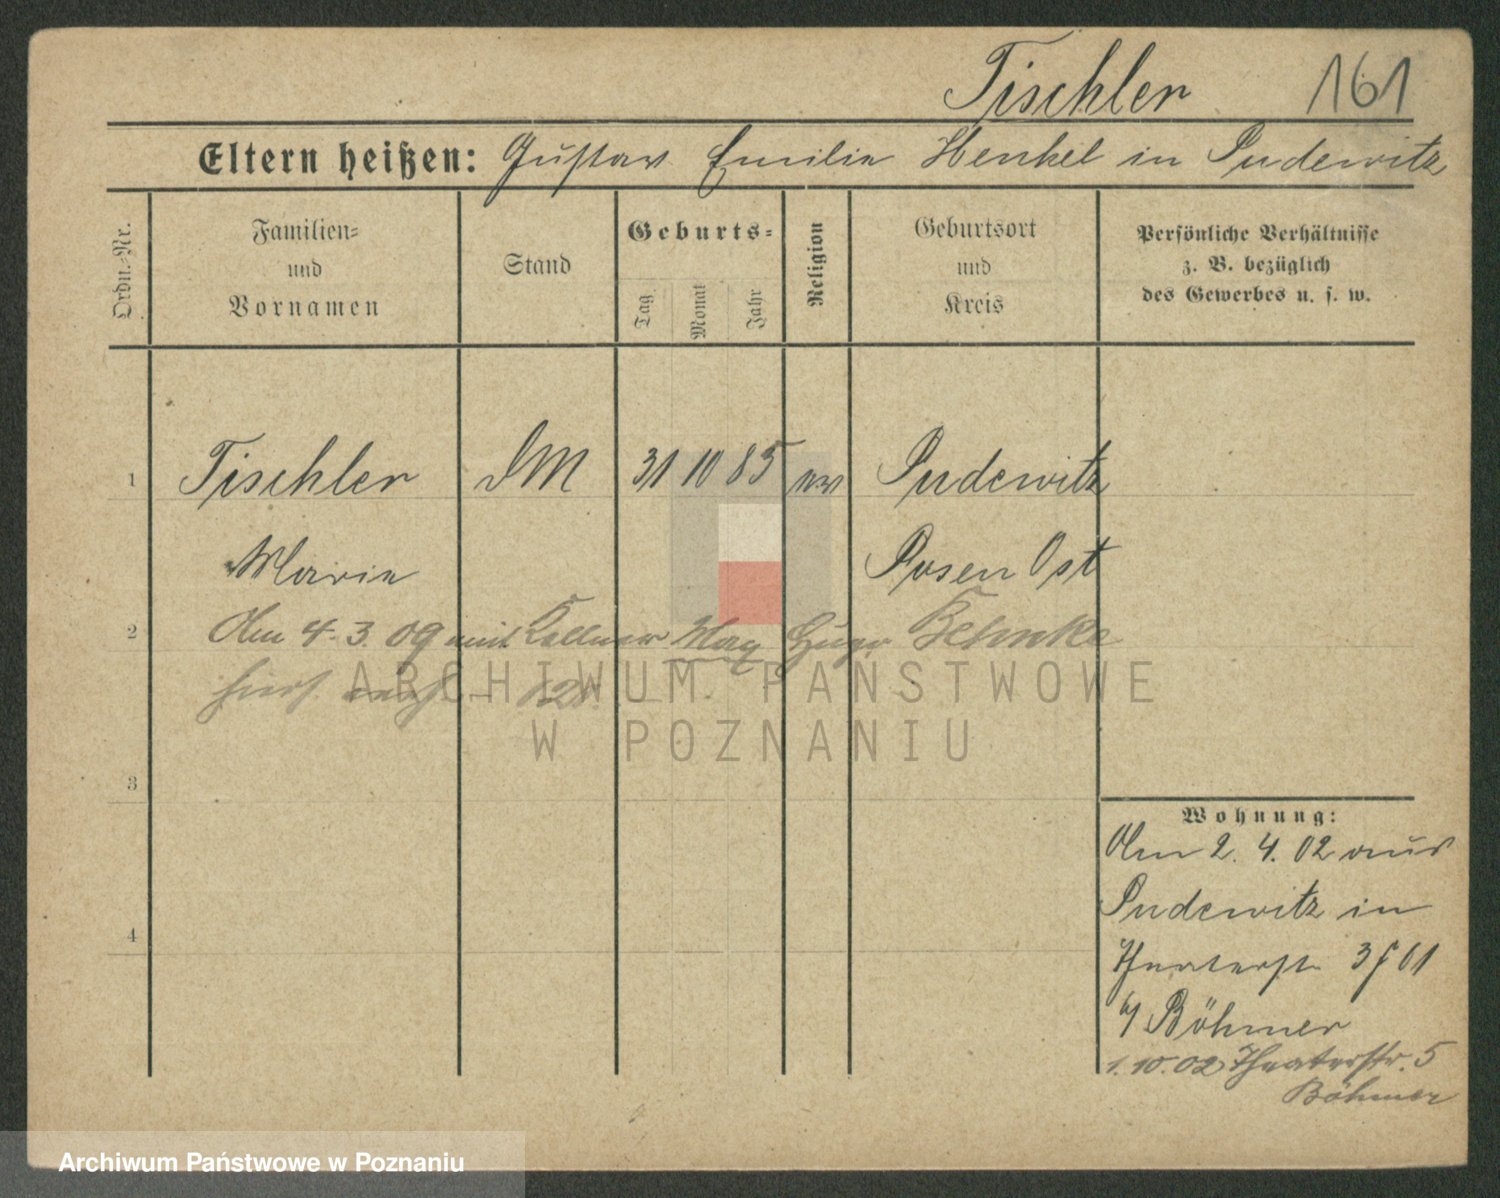 Tischler 161
Eltern heißen: Gustav Emilie Henkel in Pudewitz
Ordn.-Nr.
Familien-
und
Vornamen
Stand
Geburts-
Tag
Monat
Jahr
Religion
Geburtsort
und
Kreis
Persönliche Verhältnisse
z. B. bezüglich
des Gewerbes u. s. w.
1 Tischler DM 31 10 85 ev Pudewitz
Marie Posen Ost
2 Am 4.3.09 mit Kellner Max Hugo Behnke
3
4
Wohnung:
Am 2.4.02 aus
Pudewitz in
Theaterstr 3
b/ Böhmer
1.10.02 Theaterstr. 5
Böhmer
ARCHIWUM PAŃSTWOWE
W POZNANIU
Archiwum Państwowe w Poznaniu